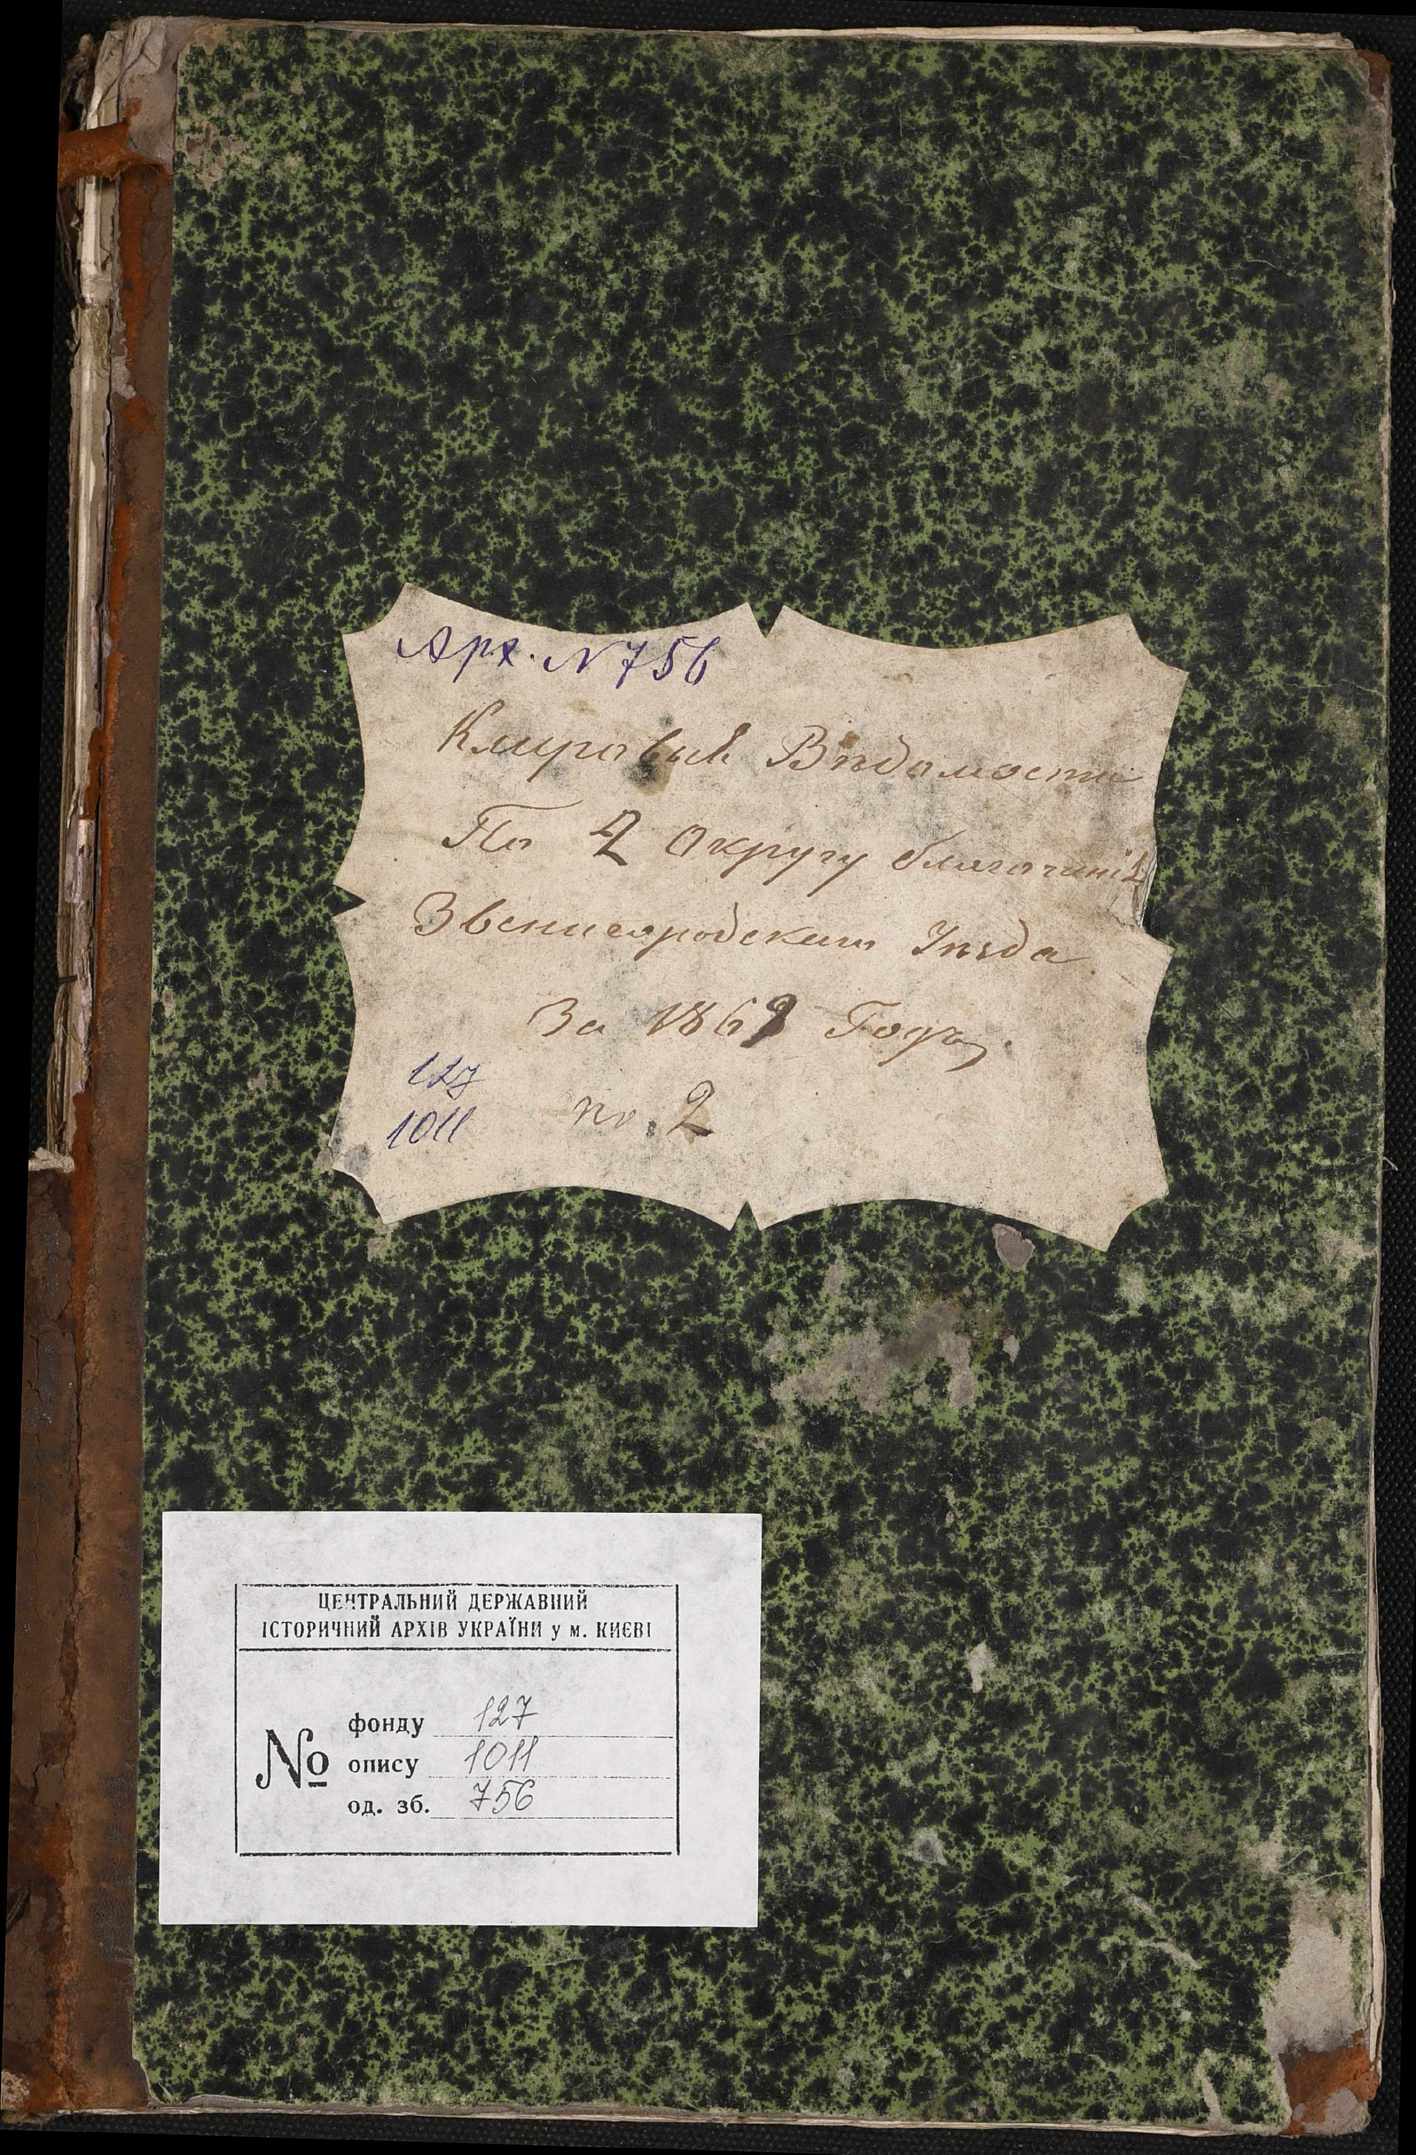 Арх. N 756
Клировыя Вѣдомости
По 2 Округу благочинія
Звенигородскаго Уѣзда
За 1869 Годъ.
127
1011
по. 2
ЦЕНТРАЛЬНИЙ ДЕРЖАВНИЙ
ІСТОРИЧНИЙ АРХІВ УКРАЇНИ у м. КИЄВІ
№
фонду 127
опису 1011
од. зб. 756